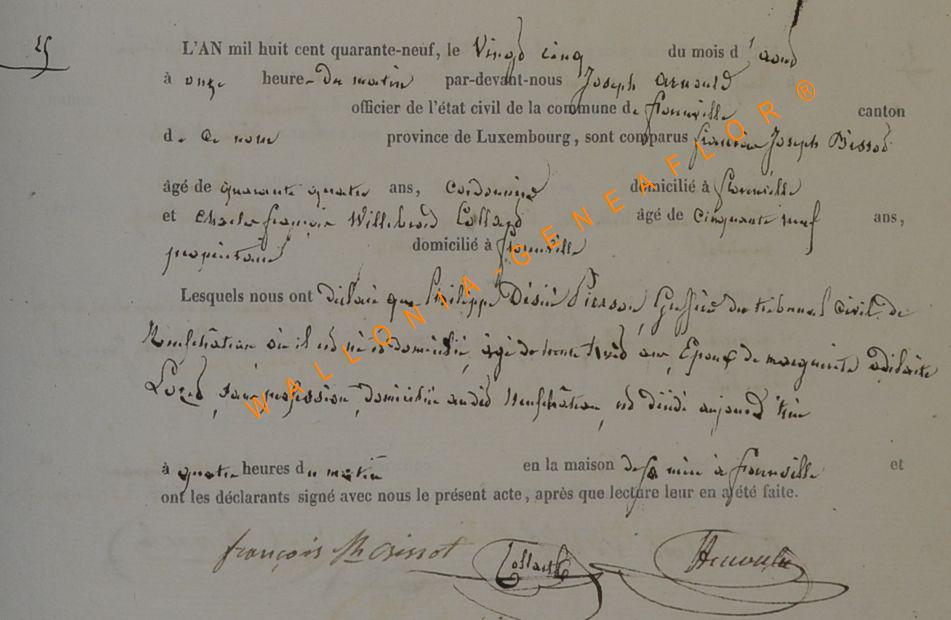 25
L'AN mil huit cent quarante-neuf, le Vingt cinq du mois d'août
à onze heures du matin par-devant-nous Joseph Arnould
officier de l'état civil de la commune de florenville canton
de Ce nom province de Luxembourg, sont comparus françois Joseph Bissot
âgé de quarante quatre ans, Cordonnier domicilié à florenville
et Charles françois Willebrord Collard âgé de cinquante neuf ans,
propriétaire domicilié à florenville
Lesquels nous ont déclaré que Philippe Désiré Pierson, Greffier du tribunal civil de
Neufchâteau où il est né et domicilié, âgé de trente ans Epoux de marguerite adélaïde
sans profession, domiciliée audit Neufchâteau, est décédé aujourd'hui
à quatre heures du matin en la maison de sa mère à florenville et
ont les déclarants signé avec nous le présent acte, après que lecture leur en a été faite.
françois Bissot Collard Arnould
WALLONIA-GENEAFLOR ®